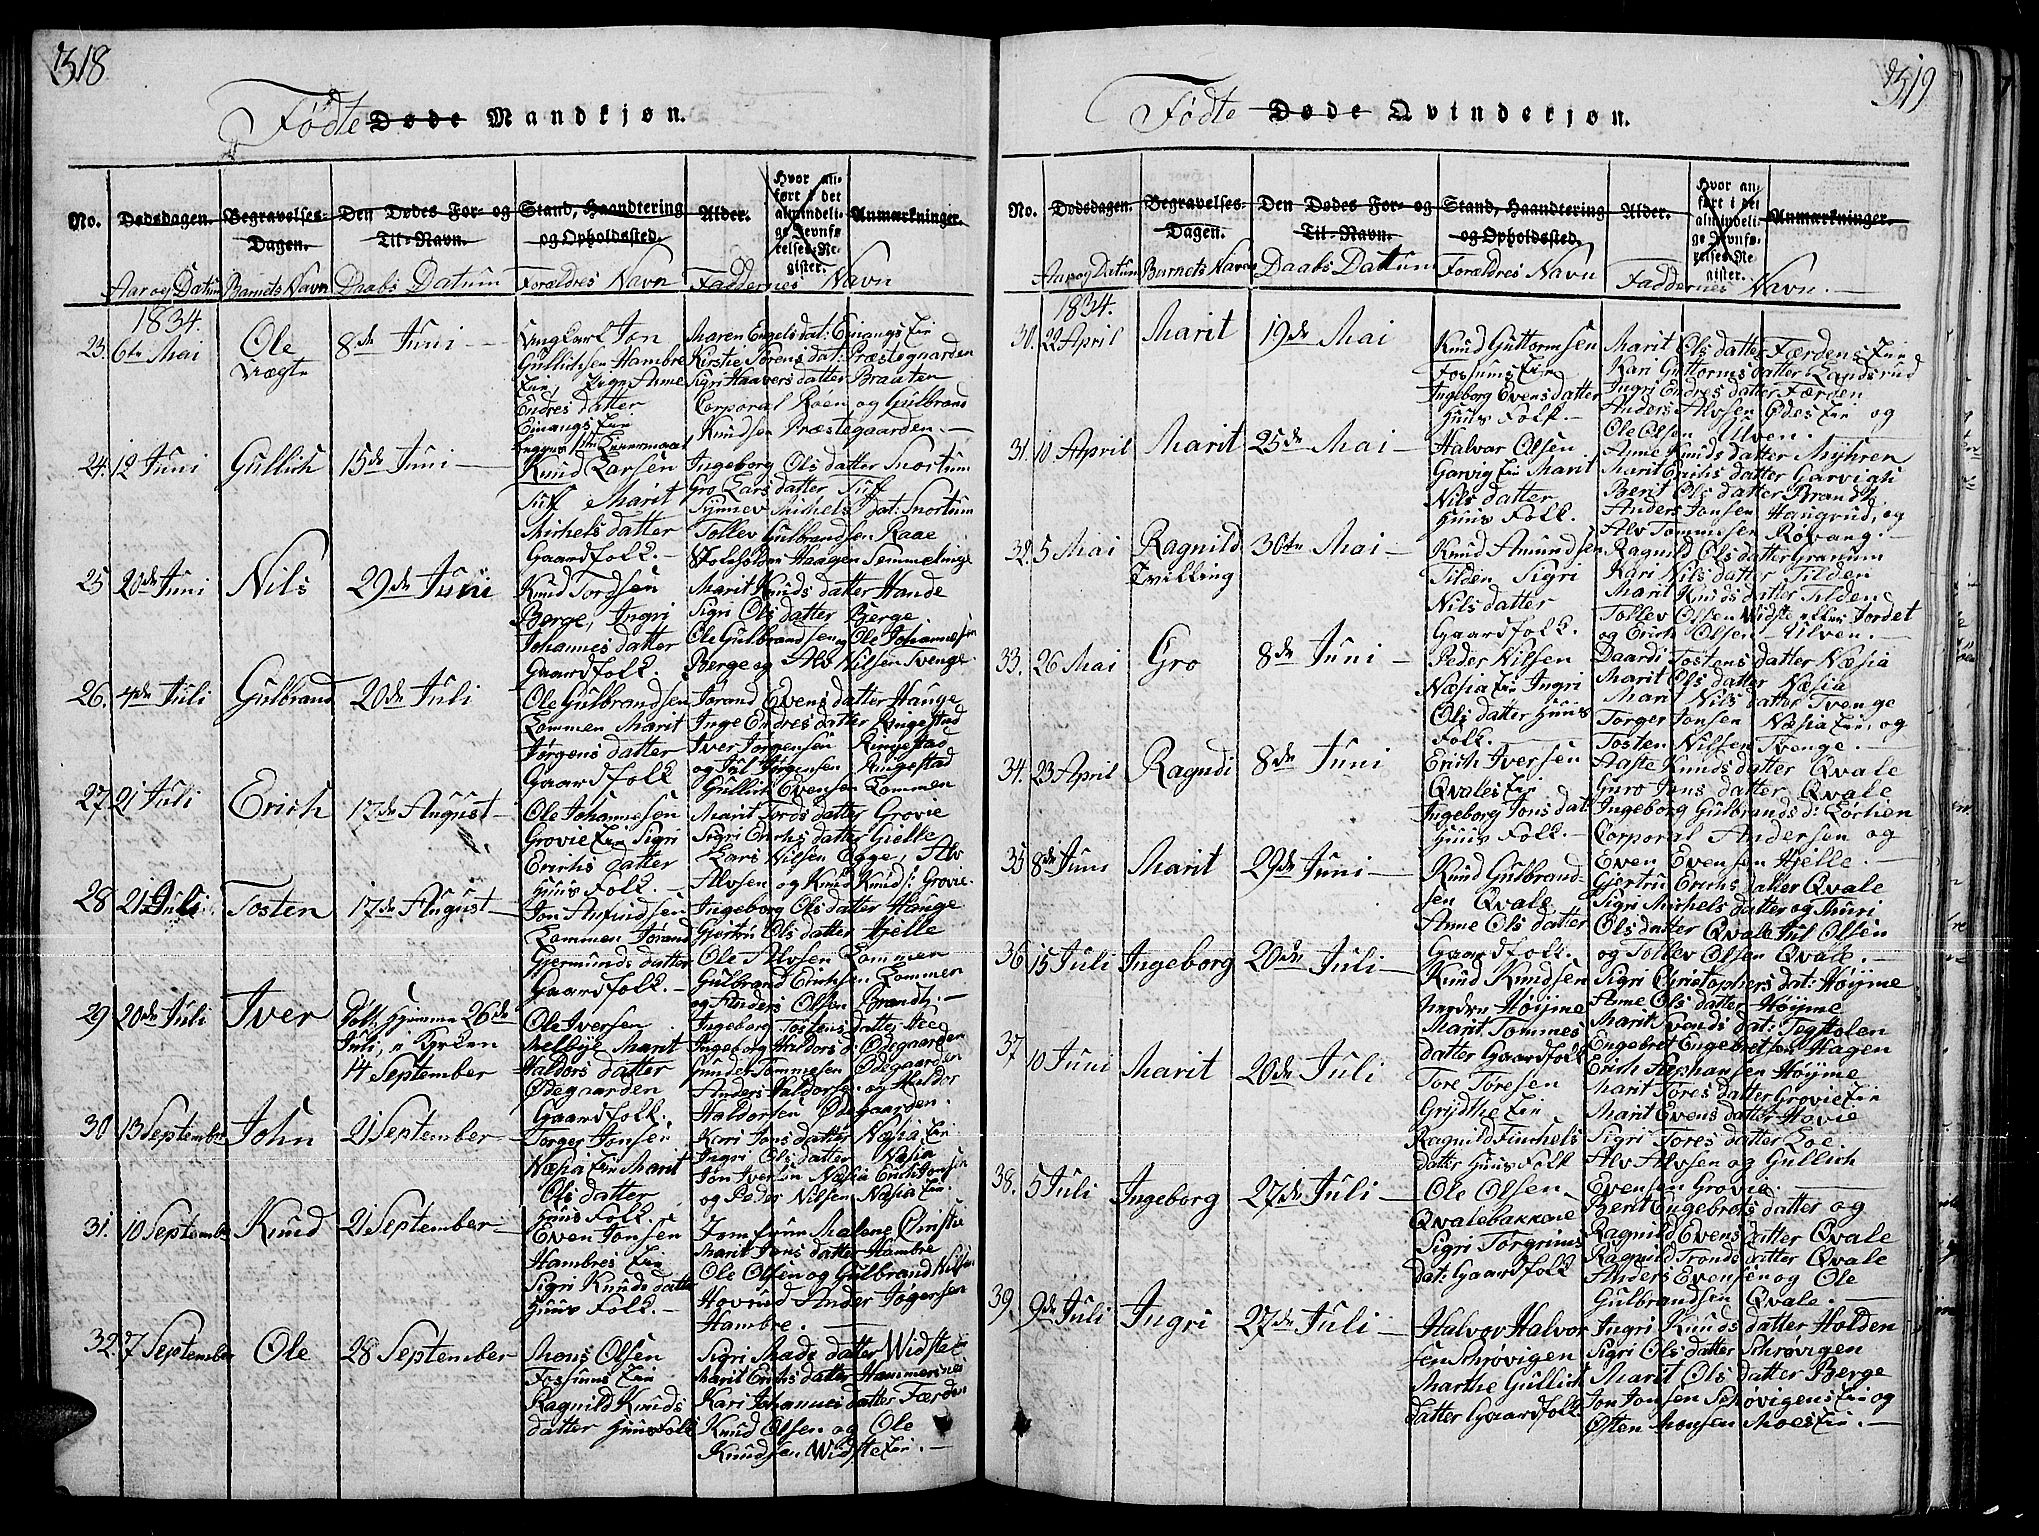 318
Fødte Døde Mandkjøn.
No.
Dødsdagen.
Begravelses-
Dagen.
Den Dødes For- og
Til-Navn.
Stand, Haandtering
og Opholdssted.
Alder.
Hvor an-
ført i det
almindeli-
ge Jevnfø-
relses-Re-
gister.
Anmærkninger.
Aar og Datum Barnets Navn Daabs Datum Forældres Navn Faddernes Navn
1834.
23. 6te Mai
Ole
8de Juni
Ungkarl Jon
Gullichsen Hambre
Eie, Pige Anne
Endres datter
Einangs Eie
Maren Engels dat: Einangs Eie
Kirstie Sørens dat: Præstegaarden
Sigri Haavers datter Brauten
Corporal Roen og Gulbrand
Knudsen Præstegaarden.
24. 12 Juni
Gullich
15de Juni
Knud Larsen
Juf Marit
Michels datter
Gaardfolk.
Ingeborg Ols datter Snortum
Gro Lars datter Juf
Synnev Michels dat: Snortum
Tollev Gulbrandsen Raae
Haagen Semmelinge
25 20de Juni
Nils
29de Juni
Knud Tordsen
Berge, Ingri
Johannes datter
Gaardfolk.
Marit Knuds datter Hande
Sigri Ols datter Berge
Ole Gulbrandsen og Ole Johannesen
Berge og Alv Nilsen Tvenge
26. 4de Juli
Gulbrand
20de Juli
Ole Gulbrandsen
Lommen Marit
Jørgens datter
Gaardfolk
Jorand Evens datter Hauge
Inge Endres datter Ringestad
Iver Jørgensen Ringestad
og Juul Jørgensen Ringestad
Gullich Evensen Lommen
27. 21 Juli
Erich
17de August
Ole Johannesen
Grovie Eie Sigri
Erichs datter
Huus Folk.
Marit Tords datter Grovie
Sigri Erichs datter Hielle
Lars Nilsen Egge, Alv
Alvsen og Knud Knuds: Grovie
28 21 Juli
Tosten
17de August
Jon Amundsen
Lommen Jørand
Gjermunds datter
Gaardfolk.
Ingeborg Ols datter Hauge
Gjertru Ols datter Hjelle
Ole Alvsen Lommen
Gulbrand Erichsen Lommen
og Anders Olsen Brandt.
29 20de Juli
Iver
Døbt hjemme 26de
Juli, i Kyrken
14 September
Ole Iversen
Melbye Marit
Haldors datter
Ødegaarden
Gaardfolk.
Ingeborg Tostens datter
Ingeborg Haldors d: Ødegaarden
Gunder Tommesen Ødegaarden
Anders Haldorsen og Haldor
Haldorsen Ødegaarden.
30 13 September
John
21 September
Torger Jonsen
Næsia Eie Marit
Ols datter
Huus Folk.
Kari Jons datter Næsia Eie
Ingri Ols datter Næsia
Jon Iversen Næsia Erich Jonsen
og Peder Nilsen Næsia Eie.
31. 10 September
Knud
21 September
Even Jonsen
Hambres Eie
Sigri Knuds datter
Huus Folk.
Jomfrue Malene
Marit Jons datter Hambre
Ole Olsen og Gulbrand Nilsen
Hovrud Ander Jogersen
Hambre.
32. 7 September
Ole
28 September
Mons Olsen
Fossums Eie
Ragnild Knuds
datter Huusfolk
Sigri Mads datter Widste Eie
Marit Erichs datter Hammernes
Kari Johannes datter Færden
Knud Olsen og Ole
Knudsen Widste Eie.
319
Fødte Døde Qvindekjøn.
No.
Dødsdagen.
Begravelses-
Dagen.
Den Dødes For- og
Til-Navn.
Stand, Haandtering
og Opholdssted.
Alder.
Hvor an-
ført i det
almindeli-
ge Jevnfø-
relses-Re-
gister.
Anmærkninger.
Aar og Datum Barnets Navn Daabs Datum Forældres Navn Faddernes Navn.
1834.
30. 22 April
Marit
19de Mai
Knud Guttormsen
Fossums Eie
Ingeborg Evens datter
Huus Folk
Marit Ols datter Færdens Eie
Kari Guttorms datter Landsrud
Ingri Endres datter Færden
Anders Alvsen Gdes Eie og
Ole Olsen Ulven.
31. 10 April
Marit
25de Mai
Halvar Olsen
Garvig Eie Marit
Nils datter
Huus Folk.
Anne Knuds datter Myhren
Marit Erichs datter Garvigh
Berit Ols datter Brandt
Anders Jonsen Haugrud, og
Alv Tommesen Røvang.
32. 5 Mai
Ragnild
Tvilling
30te Mai
Knud Amundsen
Tilden Sigri
Nils datter
Gaardfolk.
Ragnild Ols datter Granum
Kari Nils datter Tilden
Marit Knuds datter Tilden
Tollev Olsen Widste eller Jordet
og Erich Olsen Ulven.
33. 26 Mai
Gro
8de Juni
Peder Nilsen
Næsia Eie Ingri
Ols datter Huus
Folk.
Daardi Tostens datter Næsia
Marit Ols datter Næsia
Mari Nils datter Tvenge
Torger Jonsen Næsia Eie, og
Tosten Nilsen Tvenge.
34. 23 April
Ragndi
8de Juni
Erich Iversen
Qvales Eie
Ingeborg Jons dat:
Huus Folk.
Aaste Knuds datter Qvale
Guro Jons datter Qvale
Ingeborg Gulbrands d: Lørhien
Corporal Andersen og
Even Evensen Hjelle.
35 8de Juni
Marit
29de Juni
Knud Gulbrand-
sen Qvale
Anne Ols datter
Gaardfolk.
Gjertru Erichs datter Qvale
Sigri Michels datter og Thuri
Ols datter Qvale Jul Olsen
og Tollev Olsen Qvale.
36 15 Juli
Ingeborg
20de Juli
Knud Knudsen
nedre Høyme
Marit Tommes
datter Gaardfolk
Sigri Christophers dat: Høyme
Anne Ols datter Høyme
Marit Svends dat: Teg Holen
Engebret Engebretsen Hagen
Erich Stephansen Høyme
37 10 Juni
Marit
20de Juli
Tore Toresen
Grydthe Eie
Ragnild Finchels
datter Huus Folk
Marit Tores datter Grovie Eie
Marit Evens datter Hovie
Sigri Tores datter Loe
Alv Alvsen og Gullich
Evensen Grovie.
38. 5 Juli
Ingeborg
27de Juli
Ole Olsen
Qvalebakkene
Sigri Torgrims
dat: Gaardfolk
Berit Engebrets datter og
Ragnild Evens datter Qvale
Ragnild Tronds datter Qvale
Anders Evensen og Ole
Gulbrandsen Qvale.
39. 9de Juli
Ingri
27de Juli
Halvor Halvor
sen Schrøvigen
Marthe Gullich
datter Gaardfolk
Ingri Knuds datter Holden
Sigri Ols datter Schrøvigen
Marit Ols datter Berge
Jon Jonsen Schrøvigens Eie og
Østen Monsen Moes Eie.